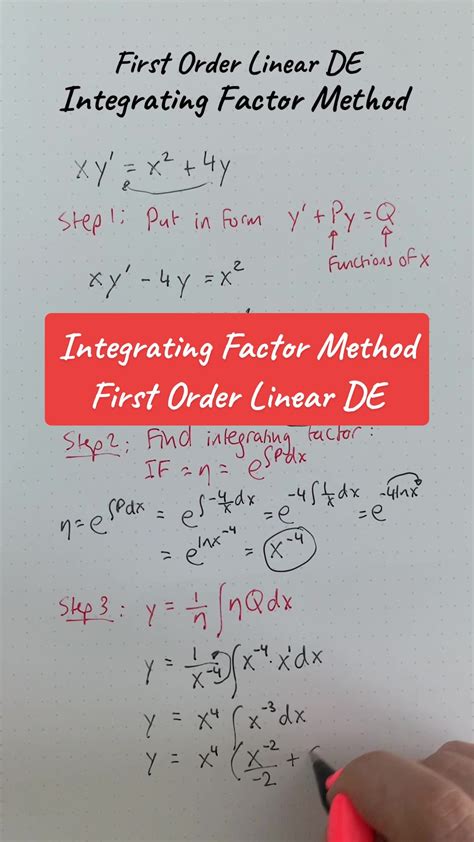 First Order Linear DE
Integrating Factor Method
xy' = x² + 4y
Step 1: Put in form y' + Py = Q
Functions of x
xy' - 4y = x²
Integrating Factor Method
First Order Linear DE
Step 2: Find integrating factor:
IF = η = e^∫Pdx
η = e^∫Pdx = e^∫-4/x dx = e^-4∫1/x dx = e^-4lnx
= e^lnx^-4 = x^-4
Step 3: y = 1/η ∫ηQdx
y = 1/x^-4 ∫x^-4 · x¹dx
y = x⁴ ∫x^-3 dx
y = x⁴ (x^-2/-2 +